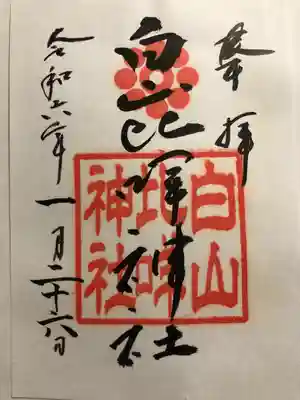 奉拝
白山比咩神社
白山比咩神社
令和六年一月二十六日